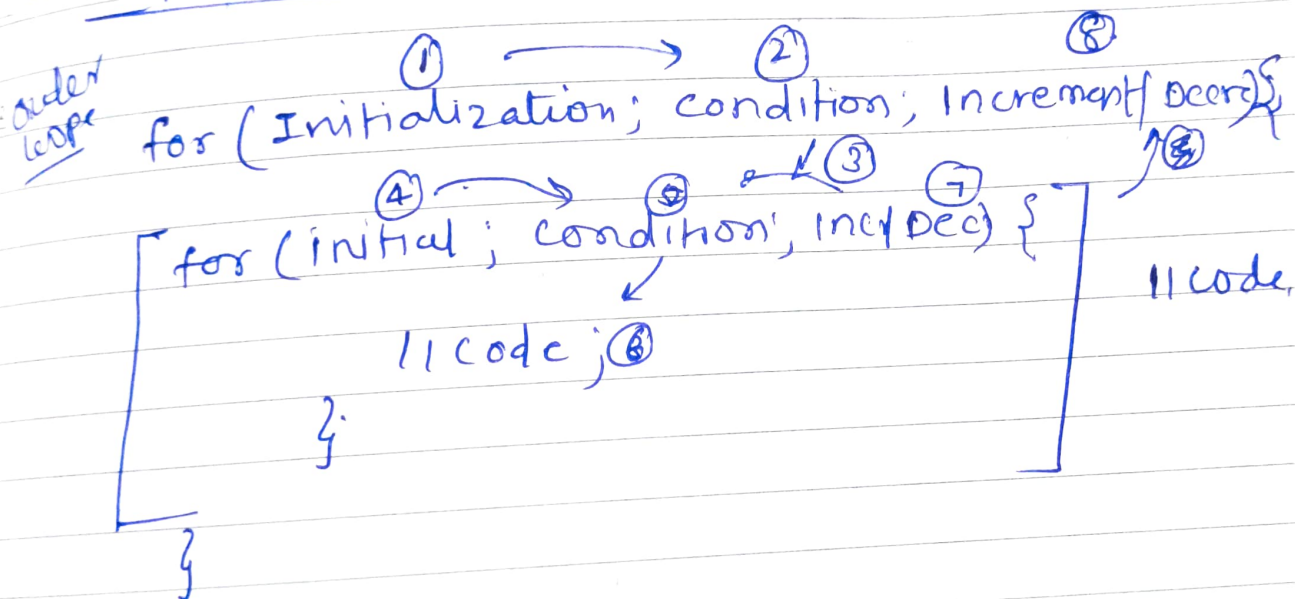 ① → ② ⑧
outer loop for (Initialization; condition; Increment/ Decre){
③
④ → ⑦
for (initial; condition; inc/Dec) {
// code,
// code; ⑥
}
}